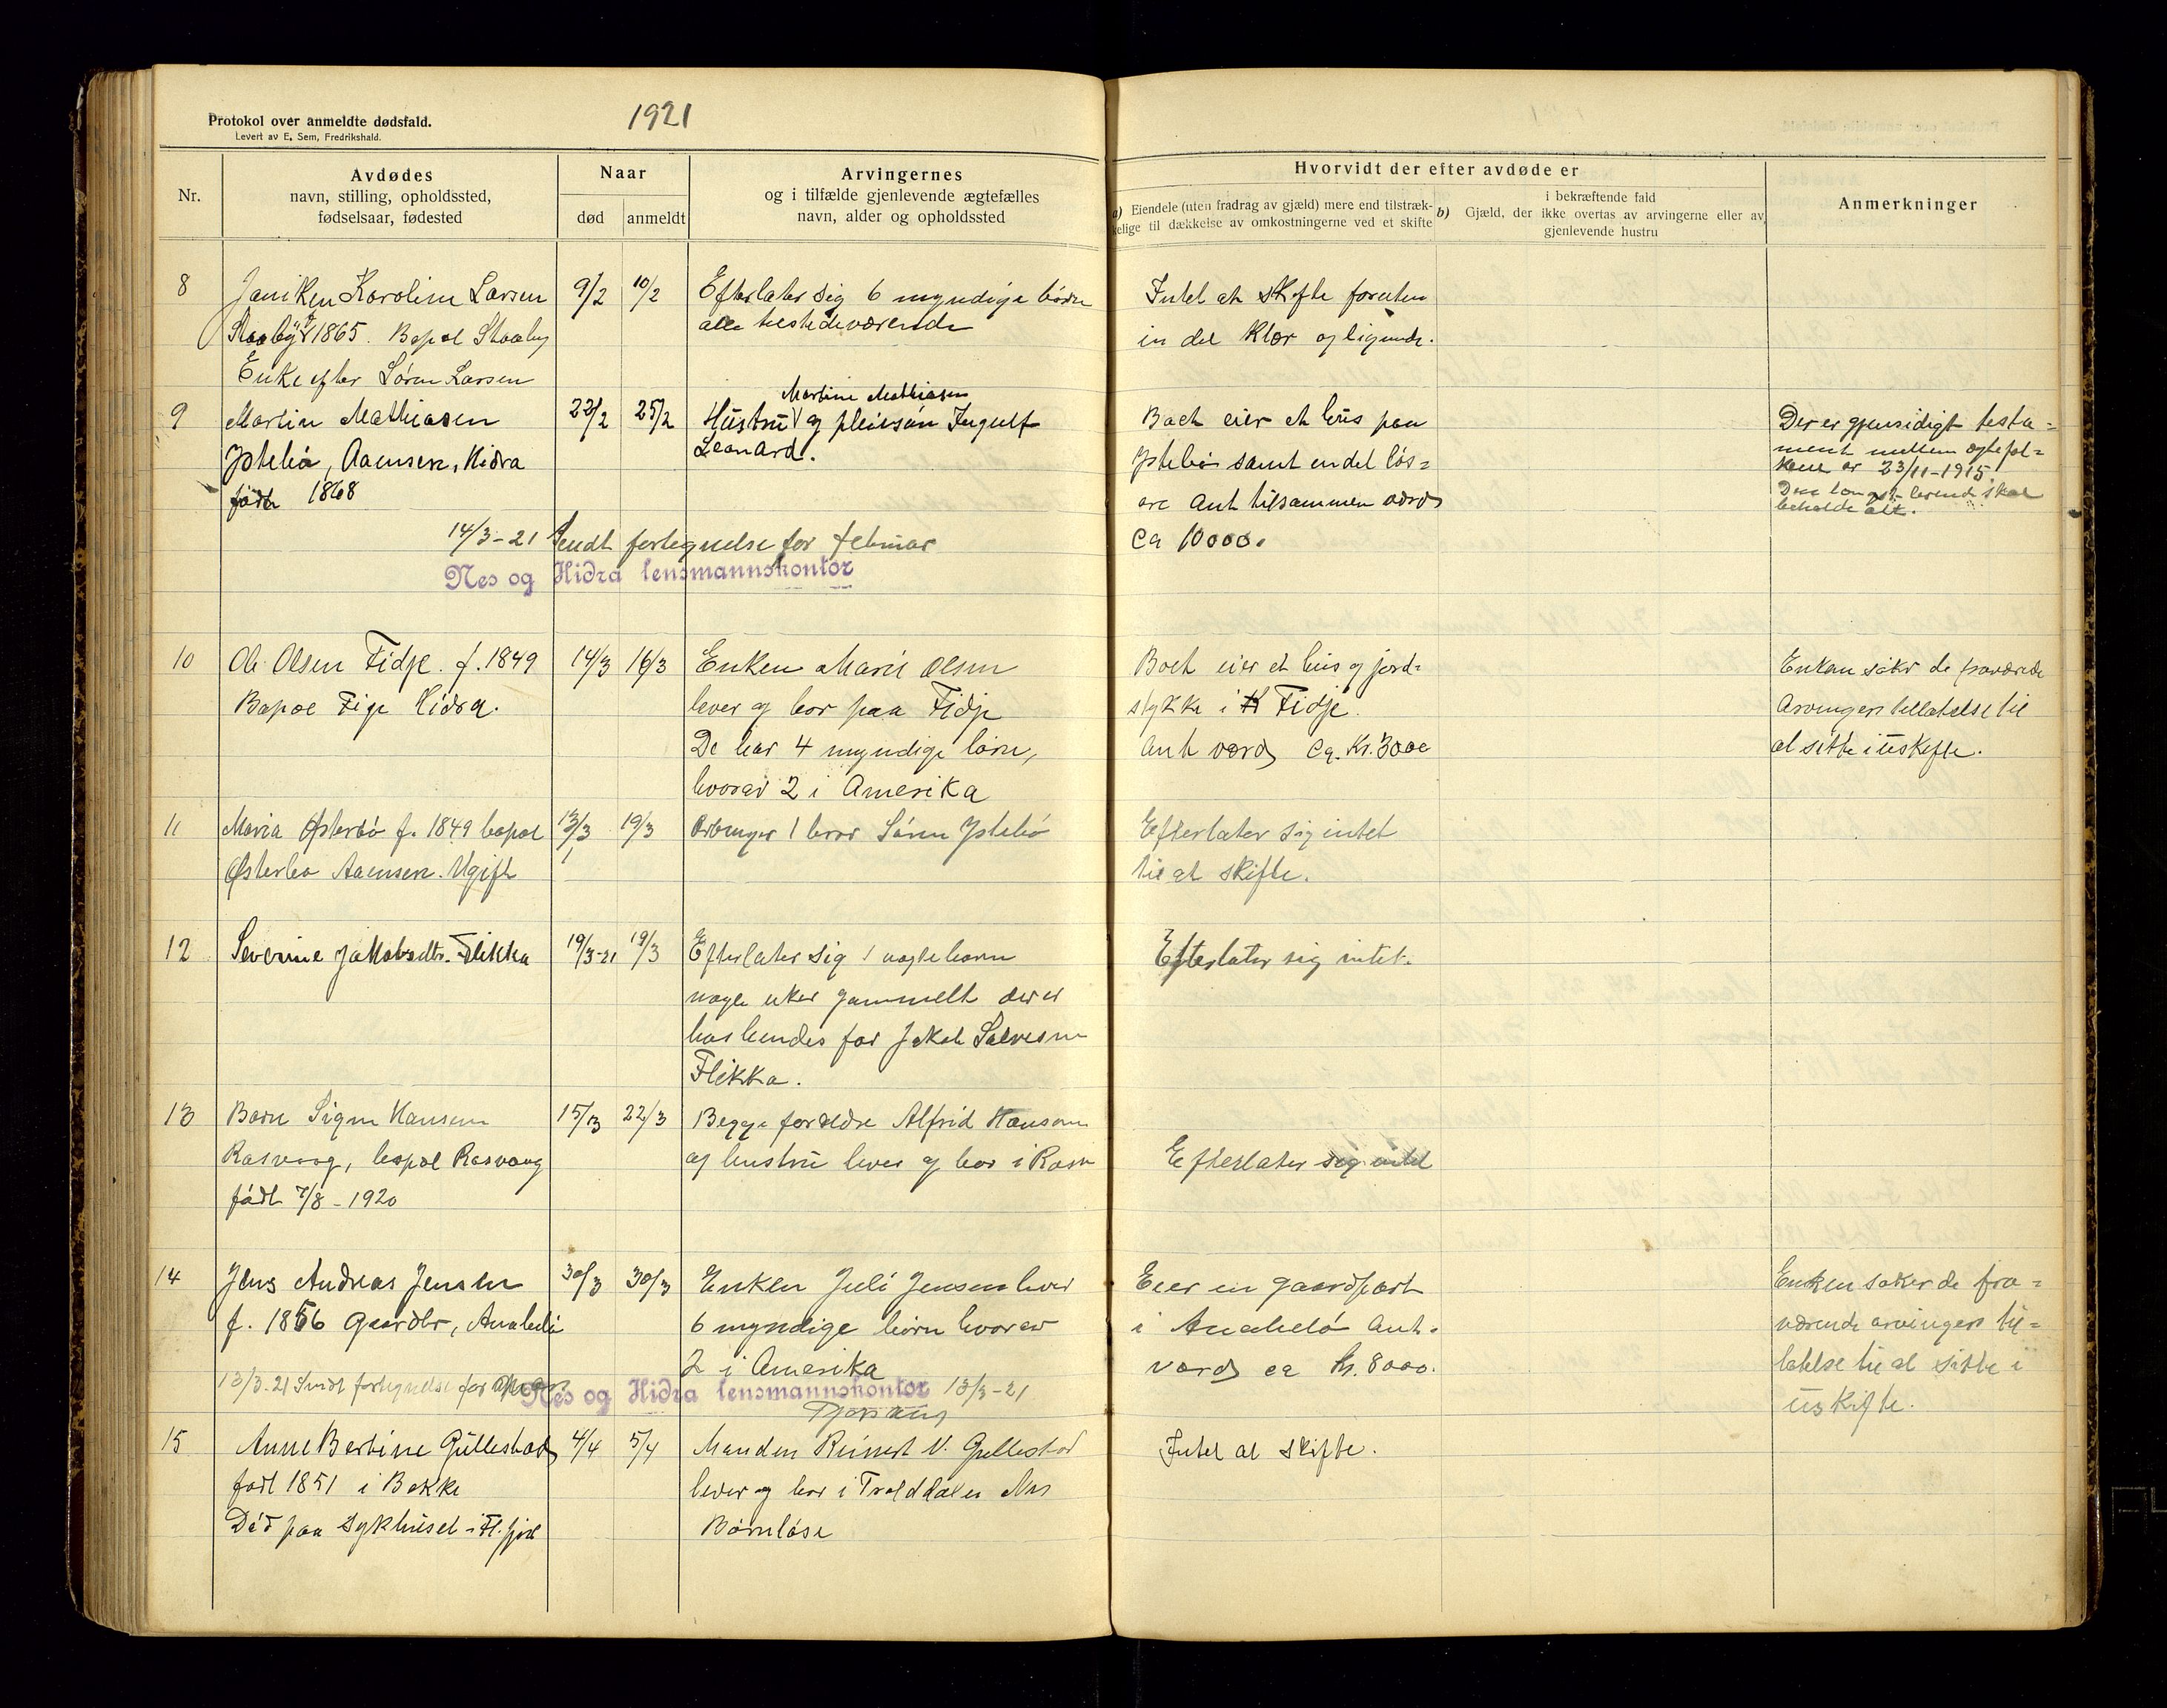 Protokol over anmeldte dødsfald.
Levert av E. Sem, Fredrikshald.
1921
Nr.
Avdødes
navn, stilling, opholdssted,
fødselsaar, fødested
Naar
død
anmeldt
Arvingernes
og i tilfælde gjenlevende ægtefælles
navn, alder og opholdssted
Hvorvidt der efter avdøde er
a) Eiendele (uten fradrag av gjæld) mere end tilstræk-
kelige til dækkelse av omkostningerne ved et skifte
b) Gjæld, der i bekræftende fald
ikke overtas av arvingerne eller av
gjenlevende hustru
Anmerkninger
8
Janiken Karoline Larsen
1865. Bopæl
Enke efter Søren Larsen
9/2
10/2
Efterlater sig 6 myndige børn
alle tilstedeværende
Intet at skifte foruten
en del klær og lignende.
9
Martin Mathiasen
Ystebø, Aamsen, Hidra
født 1868
22/2
25/2
Martine Mathiasen
Hustru og pleiesøn Ingulf
Leonard.
Boet eier et hus paa
Ystebø samt en del løs=
øre Ant tilsammen værd
ca 10000.
Der er gjensidigt testa=
ment mellem ægtefol=
kene av 23/11-1915.
Den længst levende skal
beholde alt.
14/3-21 Sendt fortegnelse for februar
Nes og Hidra lensmannskontor
10
Ole Olsen Fidje. f. 1849
Bopæl Hidra.
14/3
16/3
Enken Marie Olsen
lever og bor paa Fidje
De har 4 myndige børn,
hvorav 2 i Amerika
Boet eier et hus og jord=
stykke i Fidje.
Ant værd ca. Kr. 3000
Enken søker de fraværende
Arvingers tillatelse til
at sitte i uskifte.
11
Maria Østerbø f. 1849 bopæl
Østerbø Aamsen. Ugift
13/3
19/3
Arvinger 1 bror Søren Ystebø
Efterlater sig intet
til at skifte.
12
Severine Jakobsdtr. Flikka
19/3-21
19/3
Efterlater sig 1 uægte barn
nogle uker gammelt der er
hos hendes far Jakob Salvesen
Flikka.
Efterlater sig intet.
13
Barn Hansen
Rasvaag, bopæl Rasvaag
født 7/8-1920
15/3
22/3
Begge forældre Alfrid Hansen
og hustru lever og bor i Rasv
Efterlater sig intet
14
Jens Andreas Jensen
f. 1856 Gaardbr, Anabelø
30/3
30/3
Enken Juli Jensen lever
6 myndige børn hvorav
2 i Amerika
Eier en gaardpart
i Anabelø Ant.
værd ca kr. 8000.
Enken søker de fra=
værende arvingers til=
latelse til at sitte i
uskifte.
13/3-21 Sendt fortegnelse for
Nes og Hidra lensmannskontor 13/3-21
15
Anne Bertine Gullestad
født 1851 i Bakke
Død paa sykhuset i Fl.fjord
4/4
5/4
Manden Reinert V. Gullestad
lever og bor i Trolddalen Nes
Børnløse
Intet at skifte.